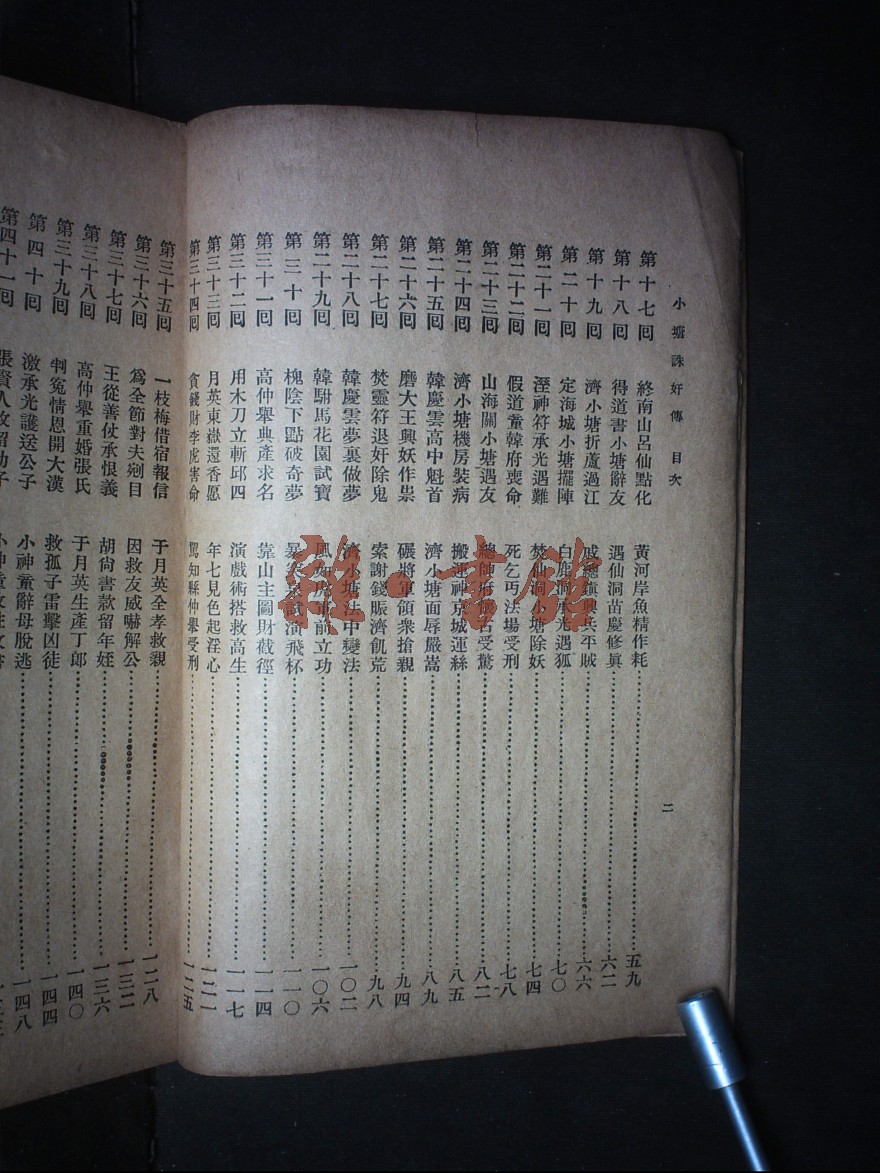 小塘誅奸傳 目次
二
第十七回 終南山呂仙點化 黃河岸魚精作耗 五九
第十八回 得道書小塘辭友 遇仙洞苗慶修眞 六二
第十九回 濟小塘折蘆過江 戚總鎭興兵平賊 六六
第二十回 定海城小塘擺陣 白鹿洞承光遇狐 七〇
第二十一回 溼神符承光遇難 焚仙洞小塘除妖 七四
第二十二回 假道童韓府喪命 死乞丐法場受刑 七八
第二十三回 山海關小塘遇友 總帥府 受驚 八二
第二十四回 濟小塘機房裝病 搬運神京城運絲 八五
第二十五回 韓慶雲高中魁首 濟小塘面辱嚴嵩 八九
第二十六回 磨大王興妖作祟 碾將軍領衆搶親 九四
第二十七回 焚靈符退奸除鬼 索謝錢賑濟飢荒 九八
第二十八回 韓慶雲夢裏做夢 濟小塘法中變法 一〇二
第二十九回 韓駙馬花園試寶 軍前立功 一〇六
第三十回 槐陰下點破奇夢 演飛杯 一一〇
第三十一回 高仲舉典產求名 靠山主圖財截徑 一一四
第三十二回 用木刀立斬邱四 演戲術搭救高生 一一七
第三十三回 月英東嶽還香愿 年七見色起淫心 一二一
第三十四回 貪錢財李虎害命 罵知縣仲舉受刑 一二五
第三十五回 一枝梅借宿報信 于月英全孝救親 一二八
第三十六回 爲全節對夫剜目 因救友威嚇解公 一三二
第三十七回 王從善仗承恨義 胡尙書款留年姪 一三六
第三十八回 高仲舉重婚張氏 于月英生產丁郎 一四〇
第三十九回 判冤情恩開大漢 救孤子雷擊凶徒 一四四
第四十回 激承光護送公子 小神童辭母脫逃 一四八
第四十一回